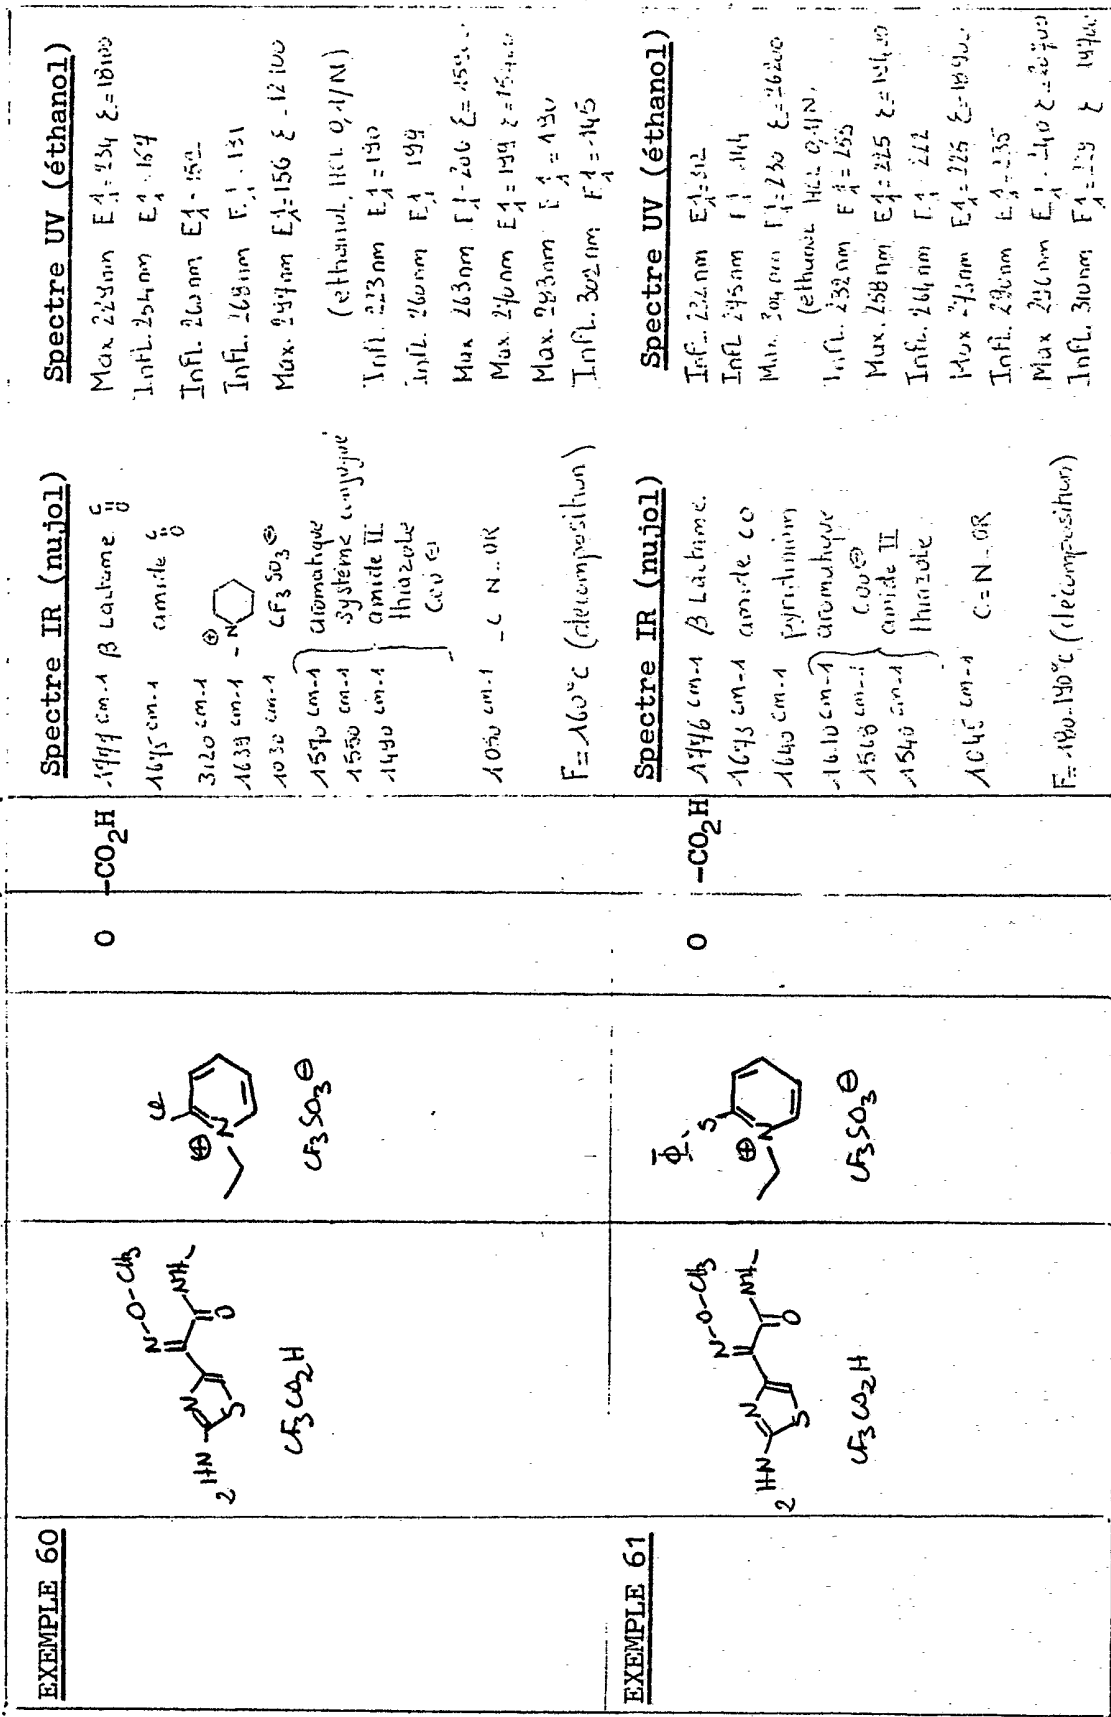 EXEMPLE 60
N-O-CH3
H2N
N
S
O
NH-
CF3CO2H
Cl
⊕
N
CF3SO3⊖
O
-CO2H
Spectre IR (nujol)
1777 cm-1 β Lactame C=O
1675 cm-1 amide C=O
3120 cm-1
1639 cm-1 -N⊕
1030 cm-1 CF3SO3⊖
1570 cm-1 aromatique
1550 cm-1 système conjugué
1490 cm-1 amide II
thiazole
COO⊖
1050 cm-1 -C N-OR
F=160°C (décomposition)
Spectre UV (éthanol)
Max 229nm E1=234 ε=18100
Infl. 254nm E1 167
Infl. 260nm E1
Infl. 268nm E1 131
Max. 297nm E1=156 ε=12100
(ethanol, HCl 0,1/N)
Infl. 223nm E1=190
Infl. 260nm E1 199
Max 263nm E1=206
Max. 270nm E1=199
Max. 283nm E1=190
Infl. 302nm E1=145
EXEMPLE 61
N-O-CH3
H2N
N
S
O
NH-
CF3CO2H
Φ-S
⊕
N
CF3SO3⊖
O
-CO2H
Spectre IR (nujol)
1776 cm-1 β Lactame.
1673 cm-1 amide CO
1640 cm-1 Pyridinium
1610 cm-1 aromatique
1568 cm-1 COO⊖
1540 cm-1 amide II
thiazole
1045 cm-1 C=N-OR
F=180-190°C (décomposition)
Spectre UV (éthanol)
Infl. 222nm E1=312
Infl 245nm E1 144
Max. 304nm E1=230 ε=26200
(ethanol HCl 0,1/N.
Infl. 232nm E1=255
Max. 258nm E1=225
Infl. 264nm E1 222
Max 273nm E1=225
Infl. 290nm E1=235
Max 296nm E1 240
Infl. 310nm E1=229 ε